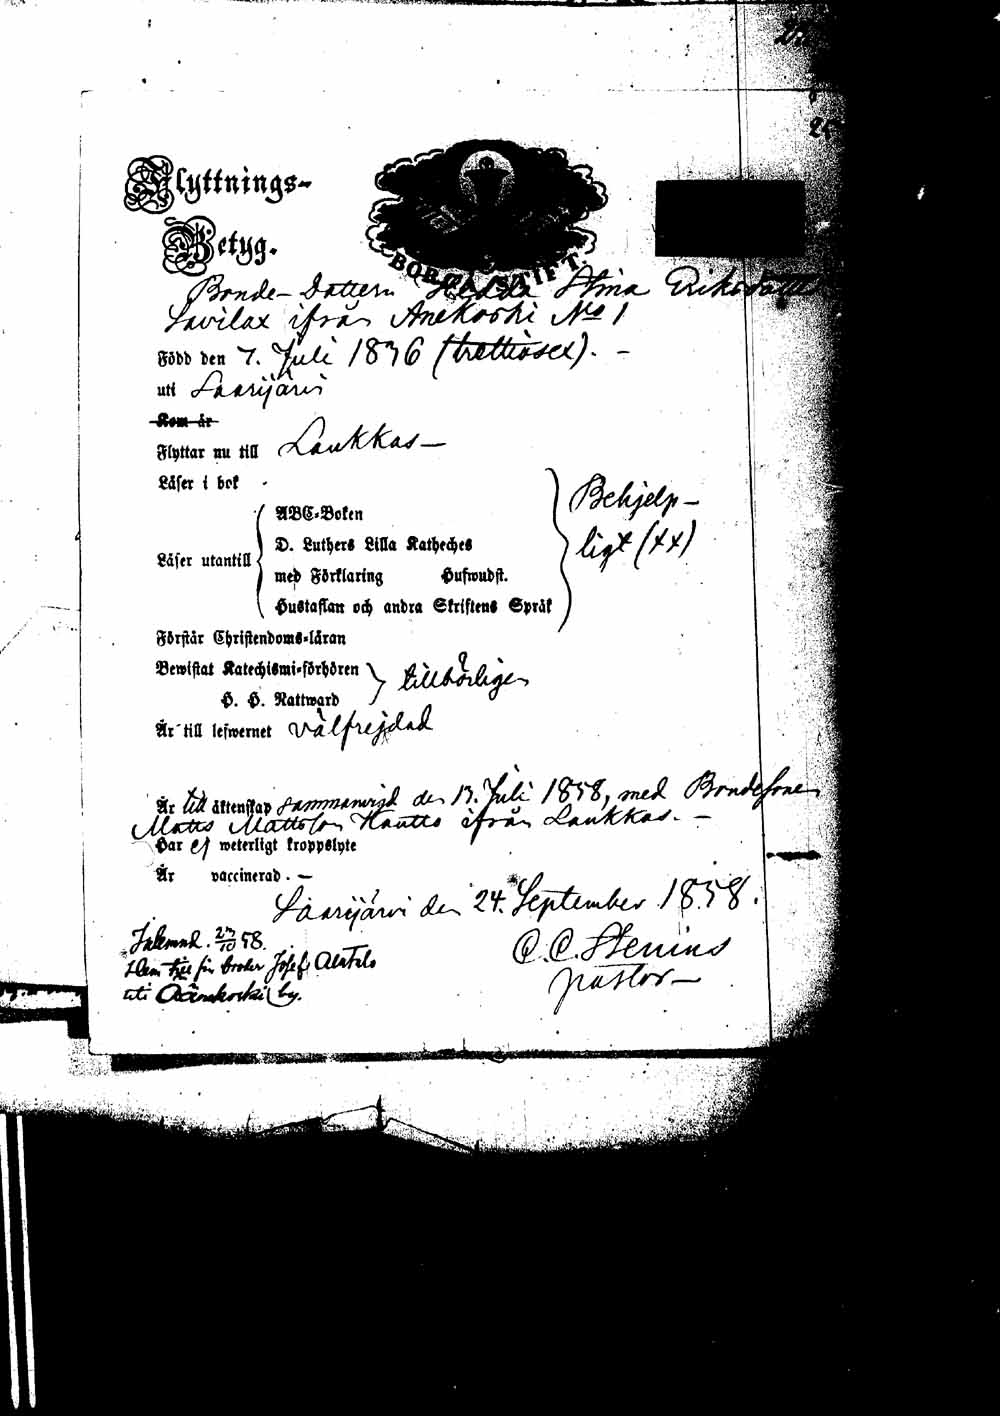 Flyttnings-
Betyg.
BORGÅ STIFT.
Bonde-Dottern Hedda Stina Eriksdotter
Savilax ifrån Änekoski No 1
Född den 7. Juli 1836 (trettiosex). -
uti Saarijärvi
Kom år
Flyttar nu till Laukkas -
Läser i bok
ABC-Boken
D. Luthers Lilla Katheches
Läser utantill
med Förklaring Hufwudst.
Hustaflan och andra Skriftens Språk
Behjelp-
ligt (++)
Förstår Christendoms-läran
Bewistat Katechismi-förhören
H. H. Nattward
tillbörligen
Är till lefwernet välfrejdad
Är till äktenskap sammanvigd den 13. Juli 1858, med Bondesonen
Matts Mattsson Hautto ifrån Laukkas. -
Har ej weterligt kroppslyte
Är vaccinerad. -
Saarijärvi den 24. September 1858.
C. C. Stenius
pastor -
58.
broder Josef
uti by.